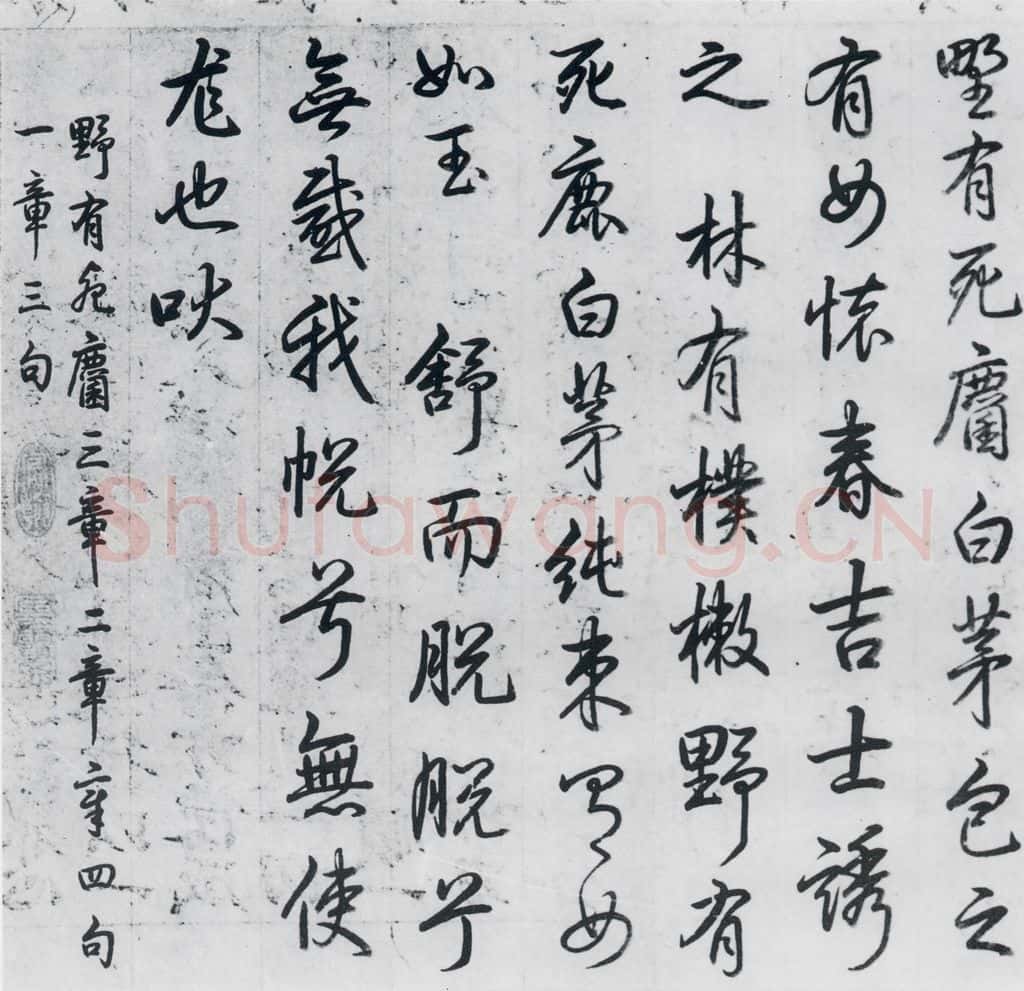 墅有死麕白茅包之
有女懷春吉士誘
之 林有樸樕野有
死鹿白茅純束有女
如玉 舒而脫脫兮
無感我帨兮無使
尨也吠
野有死麕三章二章章四句
一章三句
Shufawang.CN